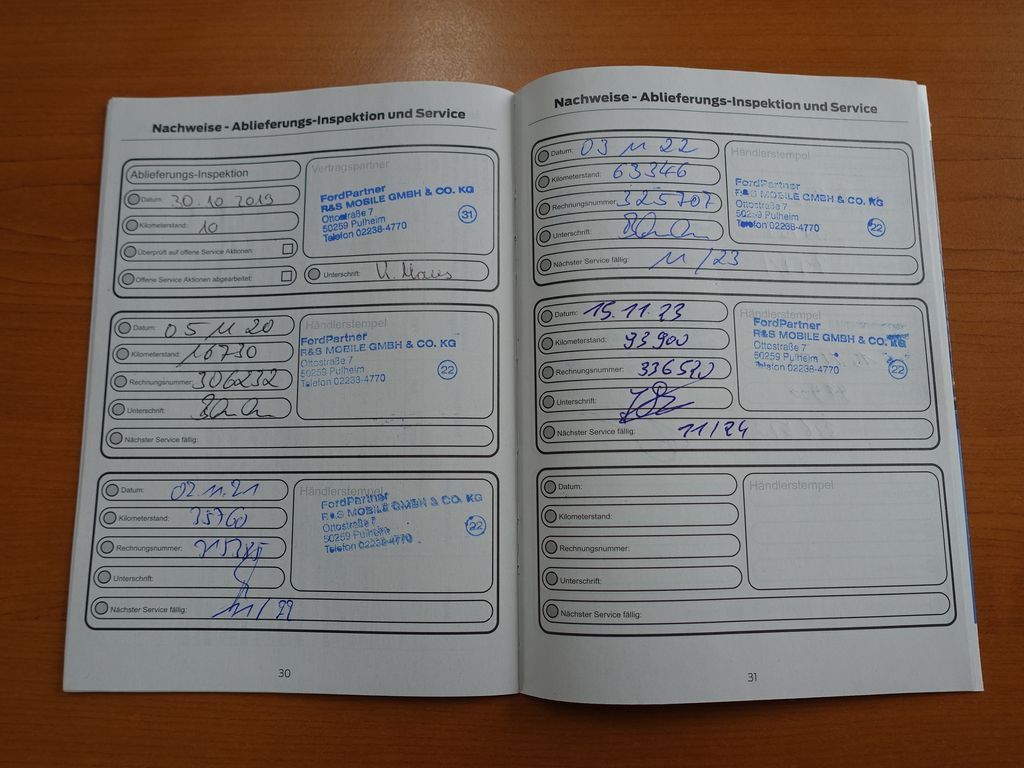 Nachweise - Ablieferungs-Inspektion und Service
Ablieferungs-Inspektion
Datum: 30.10.2019
Kilometerstand: 10
Überprüft auf offene Service Aktionen:
Offene Service Aktionen abgearbeitet:
Vertragspartner
FordPartner
R&S MOBILE GMBH & CO. KG
Ottostraße 7
50259 Pulheim
Telefon 02238-4770
31
Unterschrift:
Datum: 05 11 20
Kilometerstand: 16730
Rechnungsnummer: 306232
Unterschrift:
Nächster Service fällig:
Händlerstempel
FordPartner
R&S MOBILE GMBH & CO. KG
Ottostraße 7
50259 Pulheim
Telefon 02238-4770
22
Datum: 02.11.21
Kilometerstand: 35760
Rechnungsnummer:
Unterschrift:
Nächster Service fällig: 11/22
Händlerstempel
FordPartner
R&S MOBILE GMBH & CO. KG
Ottostraße 7
50259 Pulheim
Telefon 02238-4770
22
30
Nachweise - Ablieferungs-Inspektion und Service
Datum: 03 11 22
Kilometerstand: 63346
Rechnungsnummer: 325707
Unterschrift:
Nächster Service fällig: 11/23
Händlerstempel
FordPartner
R&S MOBILE GMBH & CO. KG
Ottostraße 7
50259 Pulheim
Telefon 02238-4770
22
Datum: 15.11.23
Kilometerstand: 93900
Rechnungsnummer: 336590
Unterschrift:
Nächster Service fällig: 11/24
Händlerstempel
FordPartner
R&S MOBILE GMBH & CO. KG
Ottostraße 7
50259 Pulheim
Telefon 02238-4770
22
Datum:
Kilometerstand:
Rechnungsnummer:
Unterschrift:
Nächster Service fällig:
Händlerstempel
31